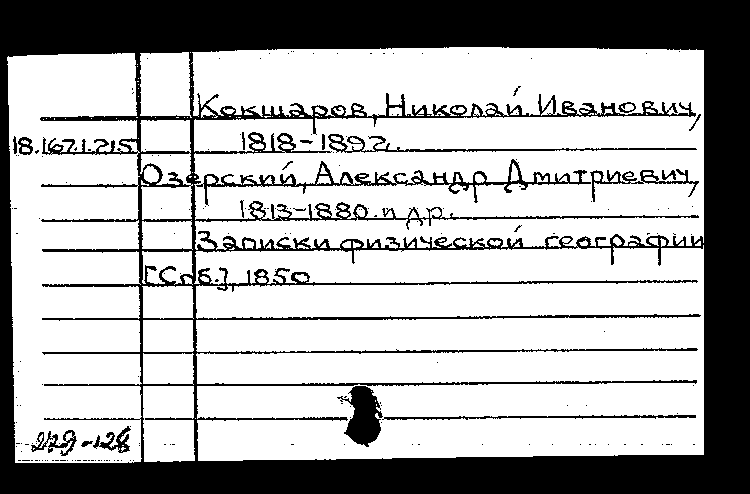 Кокшаров, Николай Иванович,
18.167.1.215 1818-1892,
Озерский, Александр Дмитриевич,
1813-1880 и др.
Записки физической географии
[Спб.], 1850
279-128